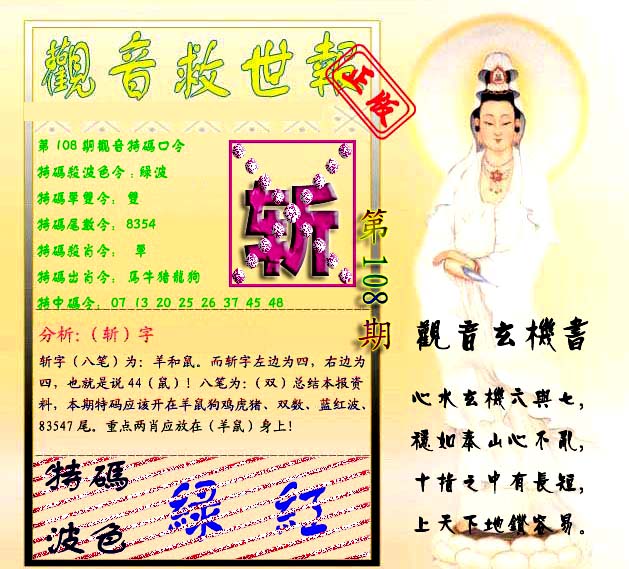 觀音救世報
正版
第108期觀音特碼口令
特碼殺波色令:綠波
特碼單雙令: 雙
特碼尾數令: 8354
特碼殺肖令: 單
特碼出肖令: 馬牛猪龍狗
特中碼令: 07 13 20 25 26 37 45 48
斩
第108期
分析:（斩）字
斩字（八笔）为：羊和鼠。而斩字左边为四，右边为
四，也就是说44（鼠）！八笔为:（双）总结本报资
料，本期特码应该开在羊鼠狗鸡虎猪、双数、蓝红波、
83547尾。重点两肖应放在（羊鼠）身上!
特碼
波色
綠 紅
觀音玄機書
心水玄機六與七，
穩如泰山心不亂，
十指之中有長短，
上天下地鏗容易。